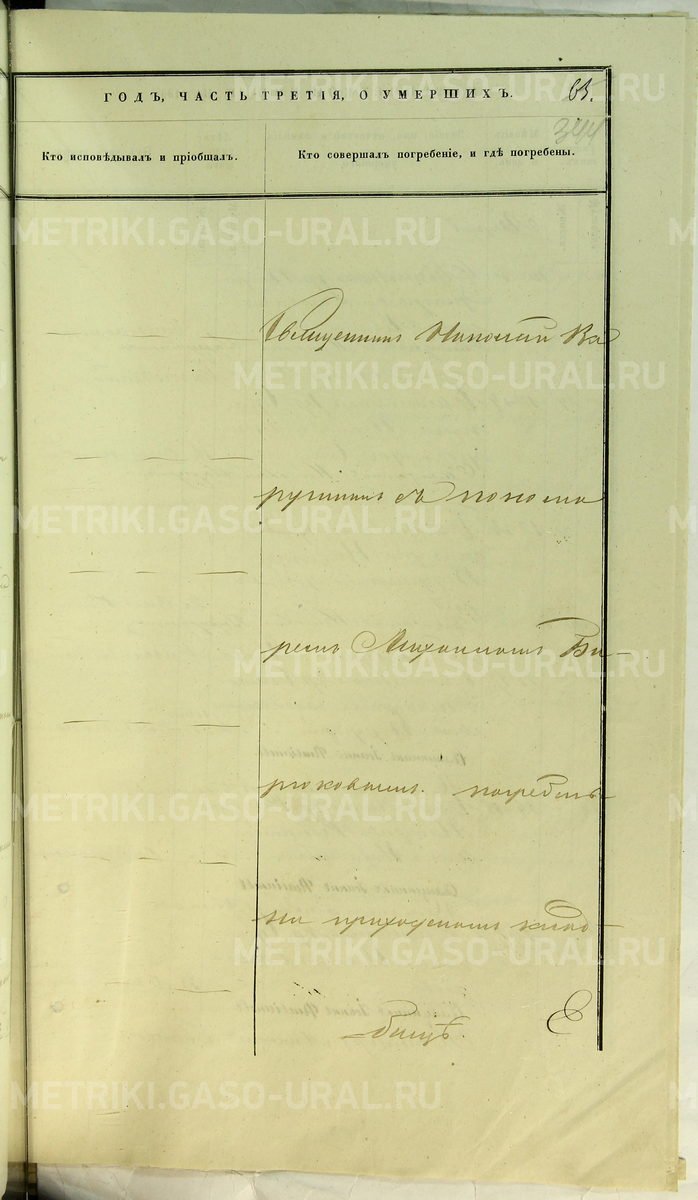 ГОДЪ, ЧАСТЬ ТРЕТІЯ, О УМЕРШИХЪ.
344
Кто исповѣдывалъ и пріобщалъ.
Кто совершалъ погребеніе, и гдѣ погребены.
METRIKI.GASO-URAL.RU
Священникъ Николай Ка
рушинъ съ понома
ремъ Михаиломъ Би-
рюковымъ. погребенъ
на приходскомъ клад-
бищѣ.